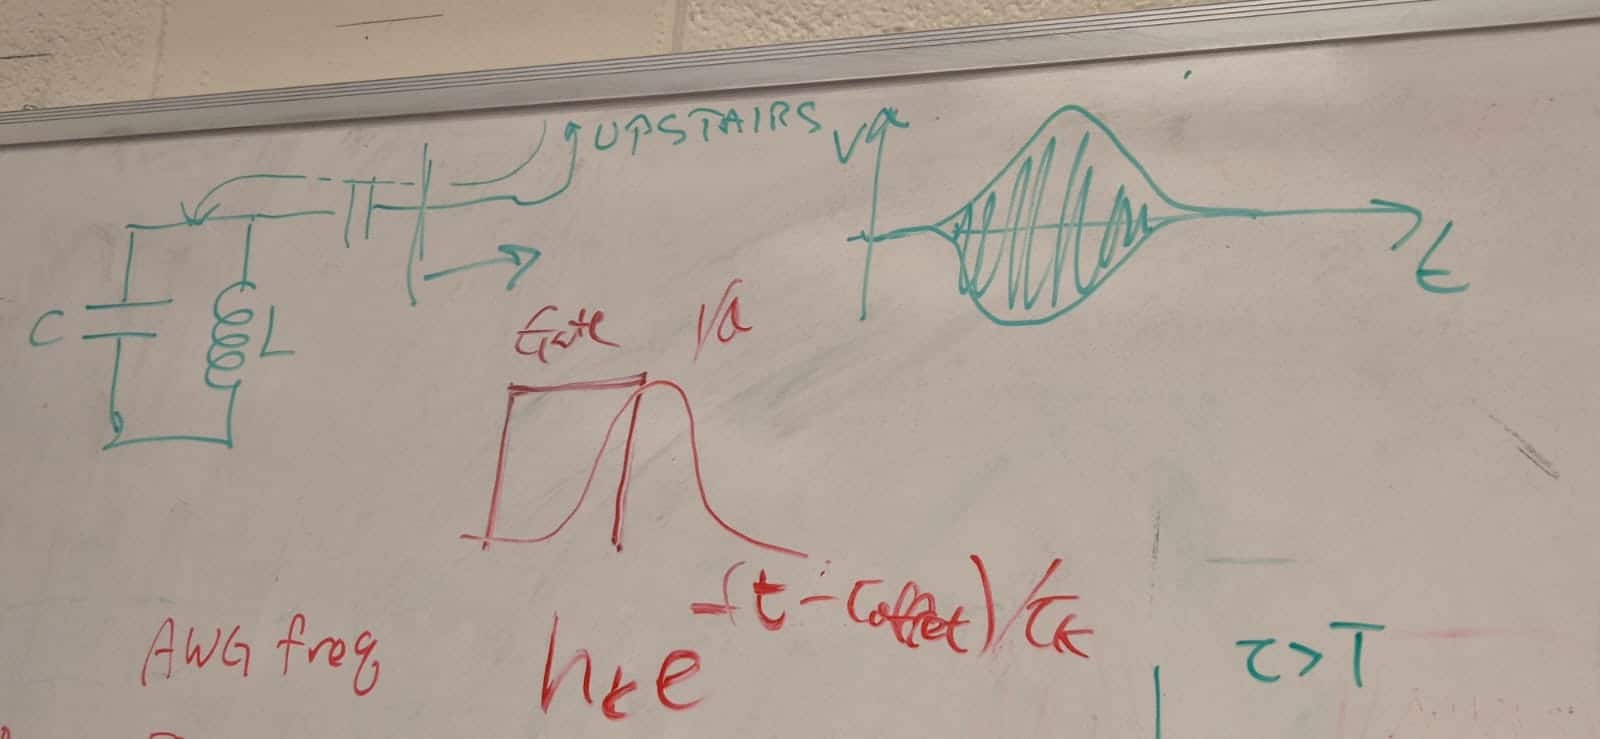 UPSTAIRS
Va
t
C
L
Gate Va
AWG freq
h e -(t - τoffset)/τ
τ > T